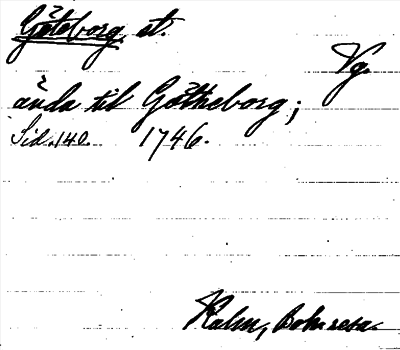 Göteborg, st.
Vg.
ända til Götheborg;
Sid. 140. 1746.
Kalm, Bohusresa.